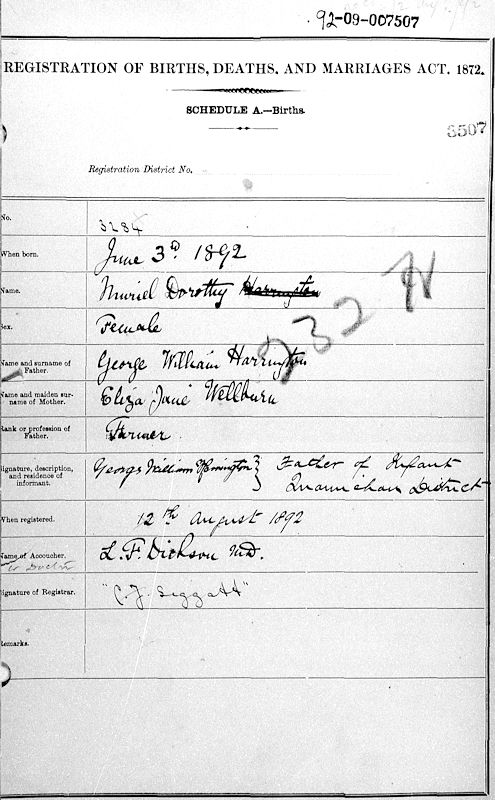 92-09-007507
REGISTRATION OF BIRTHS, DEATHS, AND MARRIAGES ACT. 1872.
SCHEDULE A.—Births.
Registration District No.
No.
3284
When born.
June 3rd. 1892
Name.
Muriel Dorothy Harrington
Sex.
Female
232 H
Name and surname of
Father.
George William Harrington
Name and maiden sur-
name of Mother.
Eliza Jane Wellburn
Rank or profession of
Father.
Farmer
Signature, description,
and residence of
informant.
George William Harrington } Father of Infant
Quamichan District
When registered.
12th August 1892
Name of Accoucher.
or Doctor
L. F. Dickson M.D.
Signature of Registrar.
Remarks.